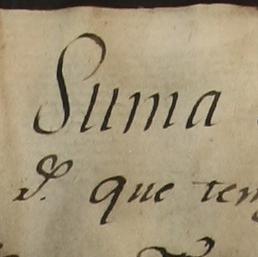 Suma
que ten